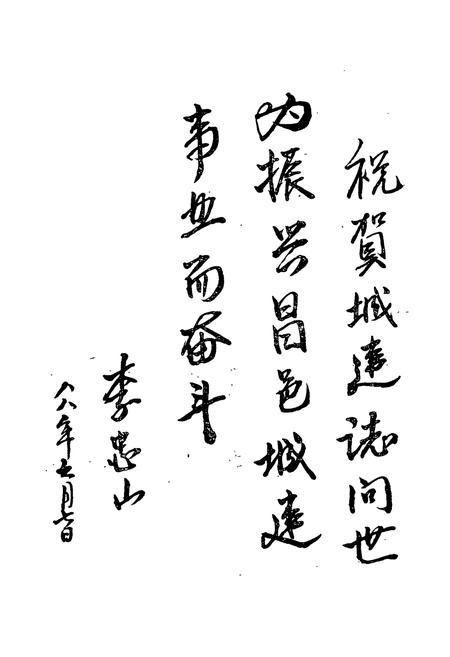 祝賀城建誌问世
为振兴昌邑城建
事业而奋斗
李忠山
八八年七月七日